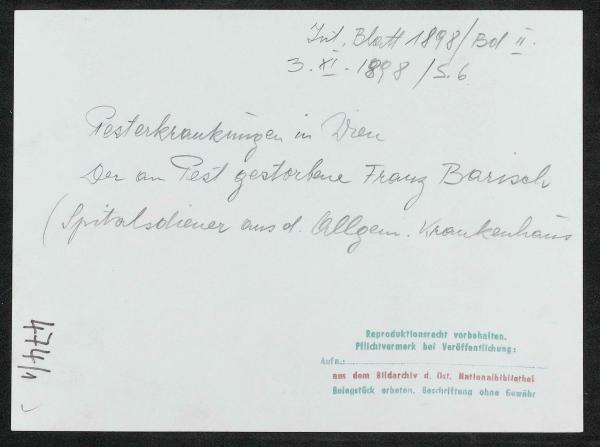 Int. Blatt 1898/Bd II.
3. XI. 1898 /S. 6
Pesterkrankungen in Wien
Der an Pest gestorbene Franz Barisch
(Spitalsdiener aus d. Allgem. Krankenhaus
474/1
Reproduktionsrecht vorbehalten.
Pflichtvermerk bei Veröffentlichung:
Aufn.:
aus dem Bildarchiv d. Öst. Nationalbibliothek
Belegstück erbeten. Beschriftung ohne Gewähr